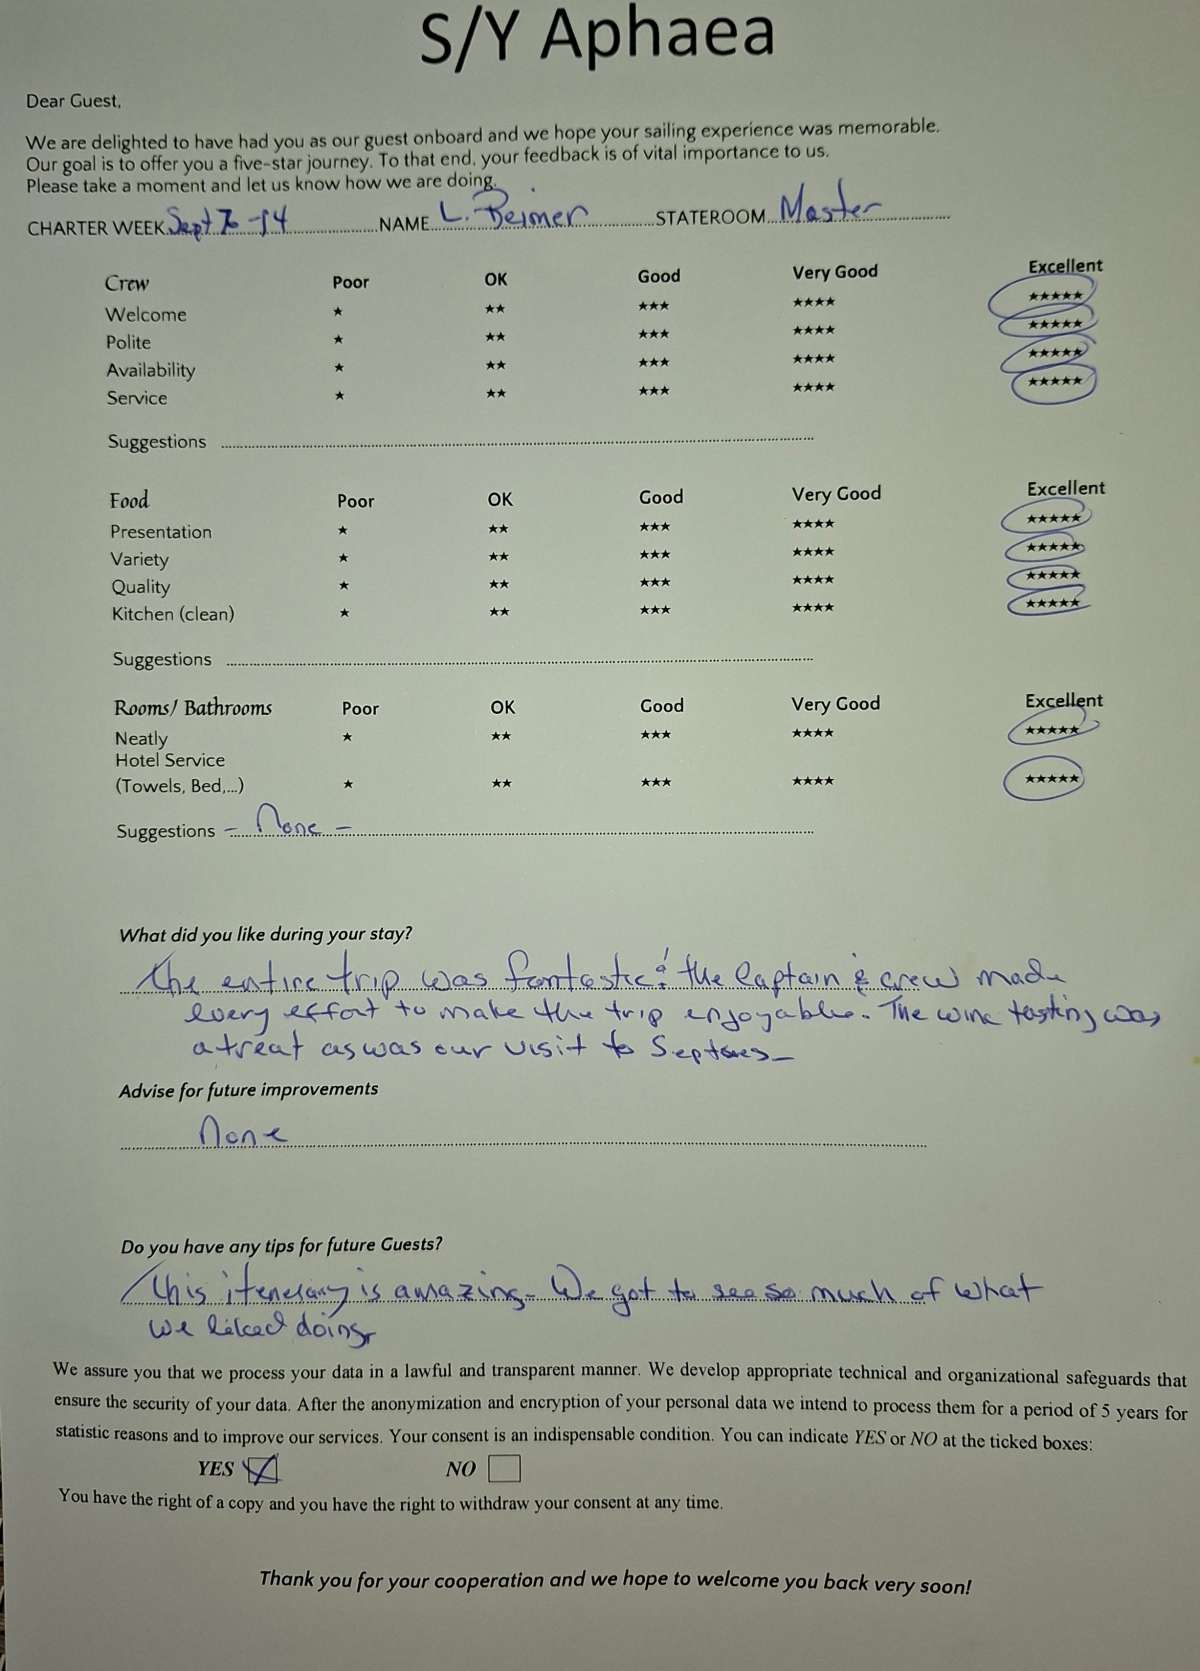 S/Y Aphaea
Dear Guest,
We are delighted to have had you as our guest onboard and we hope your sailing experience was memorable.
Our goal is to offer you a five-star journey. To that end, your feedback is of vital importance to us.
Please take a moment and let us know how we are doing.
CHARTER WEEK Sept 7-14 NAME L. Beimer STATEROOM Master
Crew Poor OK Good Very Good Excellent
Welcome ★ ★★ ★★★ ★★★★ ★★★★★
Polite ★ ★★ ★★★ ★★★★ ★★★★★
Availability ★ ★★ ★★★ ★★★★ ★★★★★
Service ★ ★★ ★★★ ★★★★ ★★★★★
Suggestions
Food Poor OK Good Very Good Excellent
Presentation ★ ★★ ★★★ ★★★★ ★★★★★
Variety ★ ★★ ★★★ ★★★★ ★★★★★
Quality ★ ★★ ★★★ ★★★★ ★★★★★
Kitchen (clean) ★ ★★ ★★★ ★★★★ ★★★★★
Suggestions
Rooms/ Bathrooms Poor OK Good Very Good Excellent
Neatly ★ ★★ ★★★ ★★★★ ★★★★★
Hotel Service
(Towels, Bed,...) ★ ★★ ★★★ ★★★★ ★★★★★
Suggestions - None -
What did you like during your stay?
The entire trip was fantastic! The Captain & crew made
every effort to make the trip enjoyable. The wine tasting was
a treat as was our visit to
Advise for future improvements
None
Do you have any tips for future Guests?
This itenerary is amazing - We got to see so much of what
we liked doing.
We assure you that we process your data in a lawful and transparent manner. We develop appropriate technical and organizational safeguards that
ensure the security of your data. After the anonymization and encryption of your personal data we intend to process them for a period of 5 years for
statistic reasons and to improve our services. Your consent is an indispensable condition. You can indicate YES or NO at the ticked boxes:
YES NO
You have the right of a copy and you have the right to withdraw your consent at any time.
Thank you for your cooperation and we hope to welcome you back very soon!